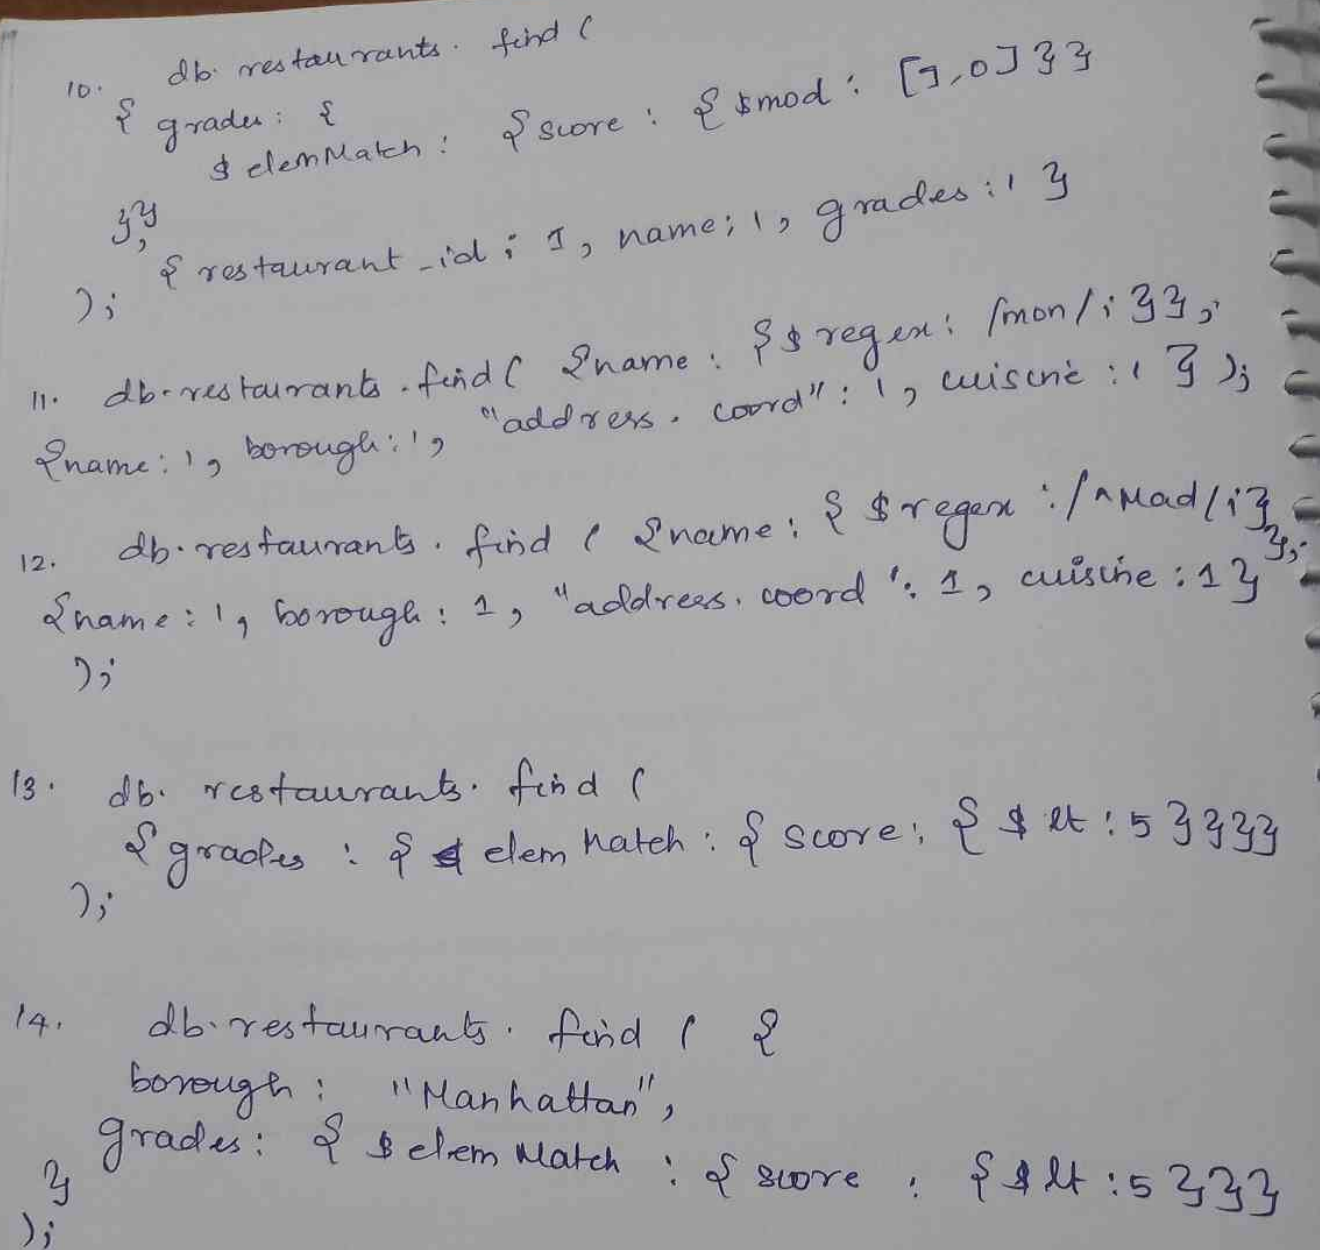 10. db. restaurants. find (
{ grades: {
$ elemMatch: { score : { $mod : [7,0] } }
}},
{ restaurant_id: 1, name: 1, grades: 1 }
);
11. db.restaurants.find( {name: { $regex: /mon/i }},
{name: 1, borough: 1, "address. coord": 1, cuisine: 1 });
12. db.restaurants. find ( {name: { $regex: /^Mad/i}
},
{name: 1, borough: 1, "address. coord": 1, cuisine: 1 }
);
13. db. restaurants. find (
{grades : { $ elem Match: { score: { $ lt: 5 }}}}
);
14. db.restaurants. find ( {
borough: "Manhattan",
grades: { $ elem Match : { score : { $ lt: 5 }}}
}
);